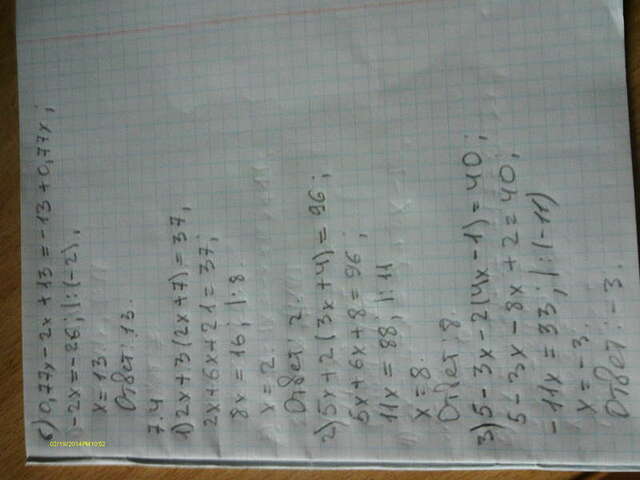 с) 0,77x-2x+13=-13+0,77x;
-2x=-26; |:(-2);
x=13
Ответ: 13.
7.4
1) 2x+3(2x+7)=37;
2x+6x+21=37;
8x=16; |:8
x=2
Ответ: 2.
2) 5x+2(3x+4)=96;
5x+6x+8=96;
11x=88; |:11
x=8.
Ответ: 8.
3) 5-3x-2(4x-1)=40;
5-3x-8x+2=40;
-11x=33; |:(-11)
x=-3.
Ответ: -3.
02/19/2014 PM 10:52